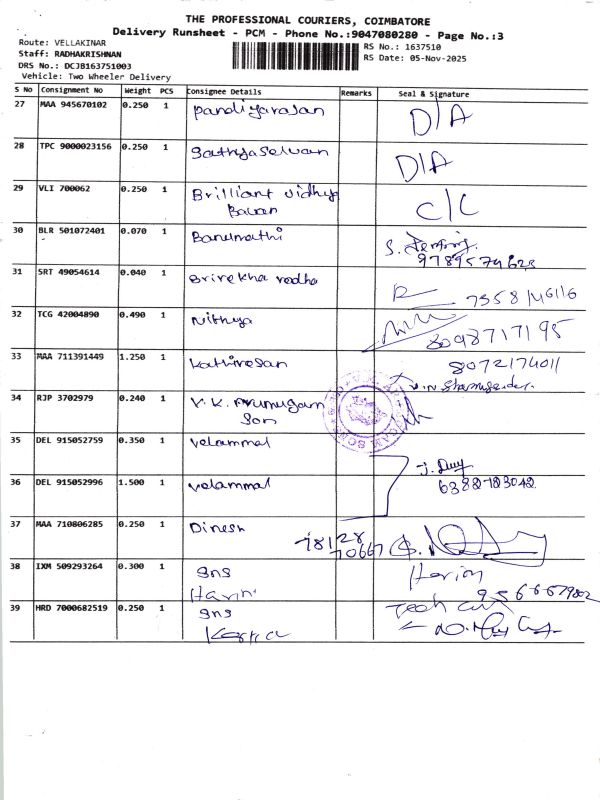 THE PROFESSIONAL COURIERS, COIMBATORE
Delivery Runsheet - PCM - Phone No.:9047080280 - Page No.:3
Route: VELLAKINAR
Staff: RADHAKRISHNAN
DRS No.: DCJB163751003
Vehicle: Two Wheeler Delivery
RS No.: 1637510
RS Date: 05-Nov-2025
S No Consignment No Weight PCS Consignee Details Remarks Seal & Signature
27 MAA 945670102 0.250 1 Pandiyarajan D/A
28 TPC 9000023156 0.250 1 Sathyaselvan D/A
29 VLI 700062 0.250 1 Brilliant vidhya C/C
Bavan
30 BLR 501072401 0.070 1 Banumathi S.
9789574623
31 SRT 49054614 0.040 1 Srirekha radha 7358146116
32 TCG 42004890 0.490 1 Nithya 8098717195
33 MAA 711391449 1.250 1 Kathiresan 8072174011
34 RJP 3702979 0.240 1 V.K. Arumugam
Son
35 DEL 915052759 0.350 1 velammal
36 DEL 915052996 1.500 1 velammal J.
6382783042
37 MAA 710806285 0.250 1 Dinesh 78128
70667
38 IXM 509293264 0.300 1 SNS
Harini
39 HRD 7000682519 0.250 1 SNS